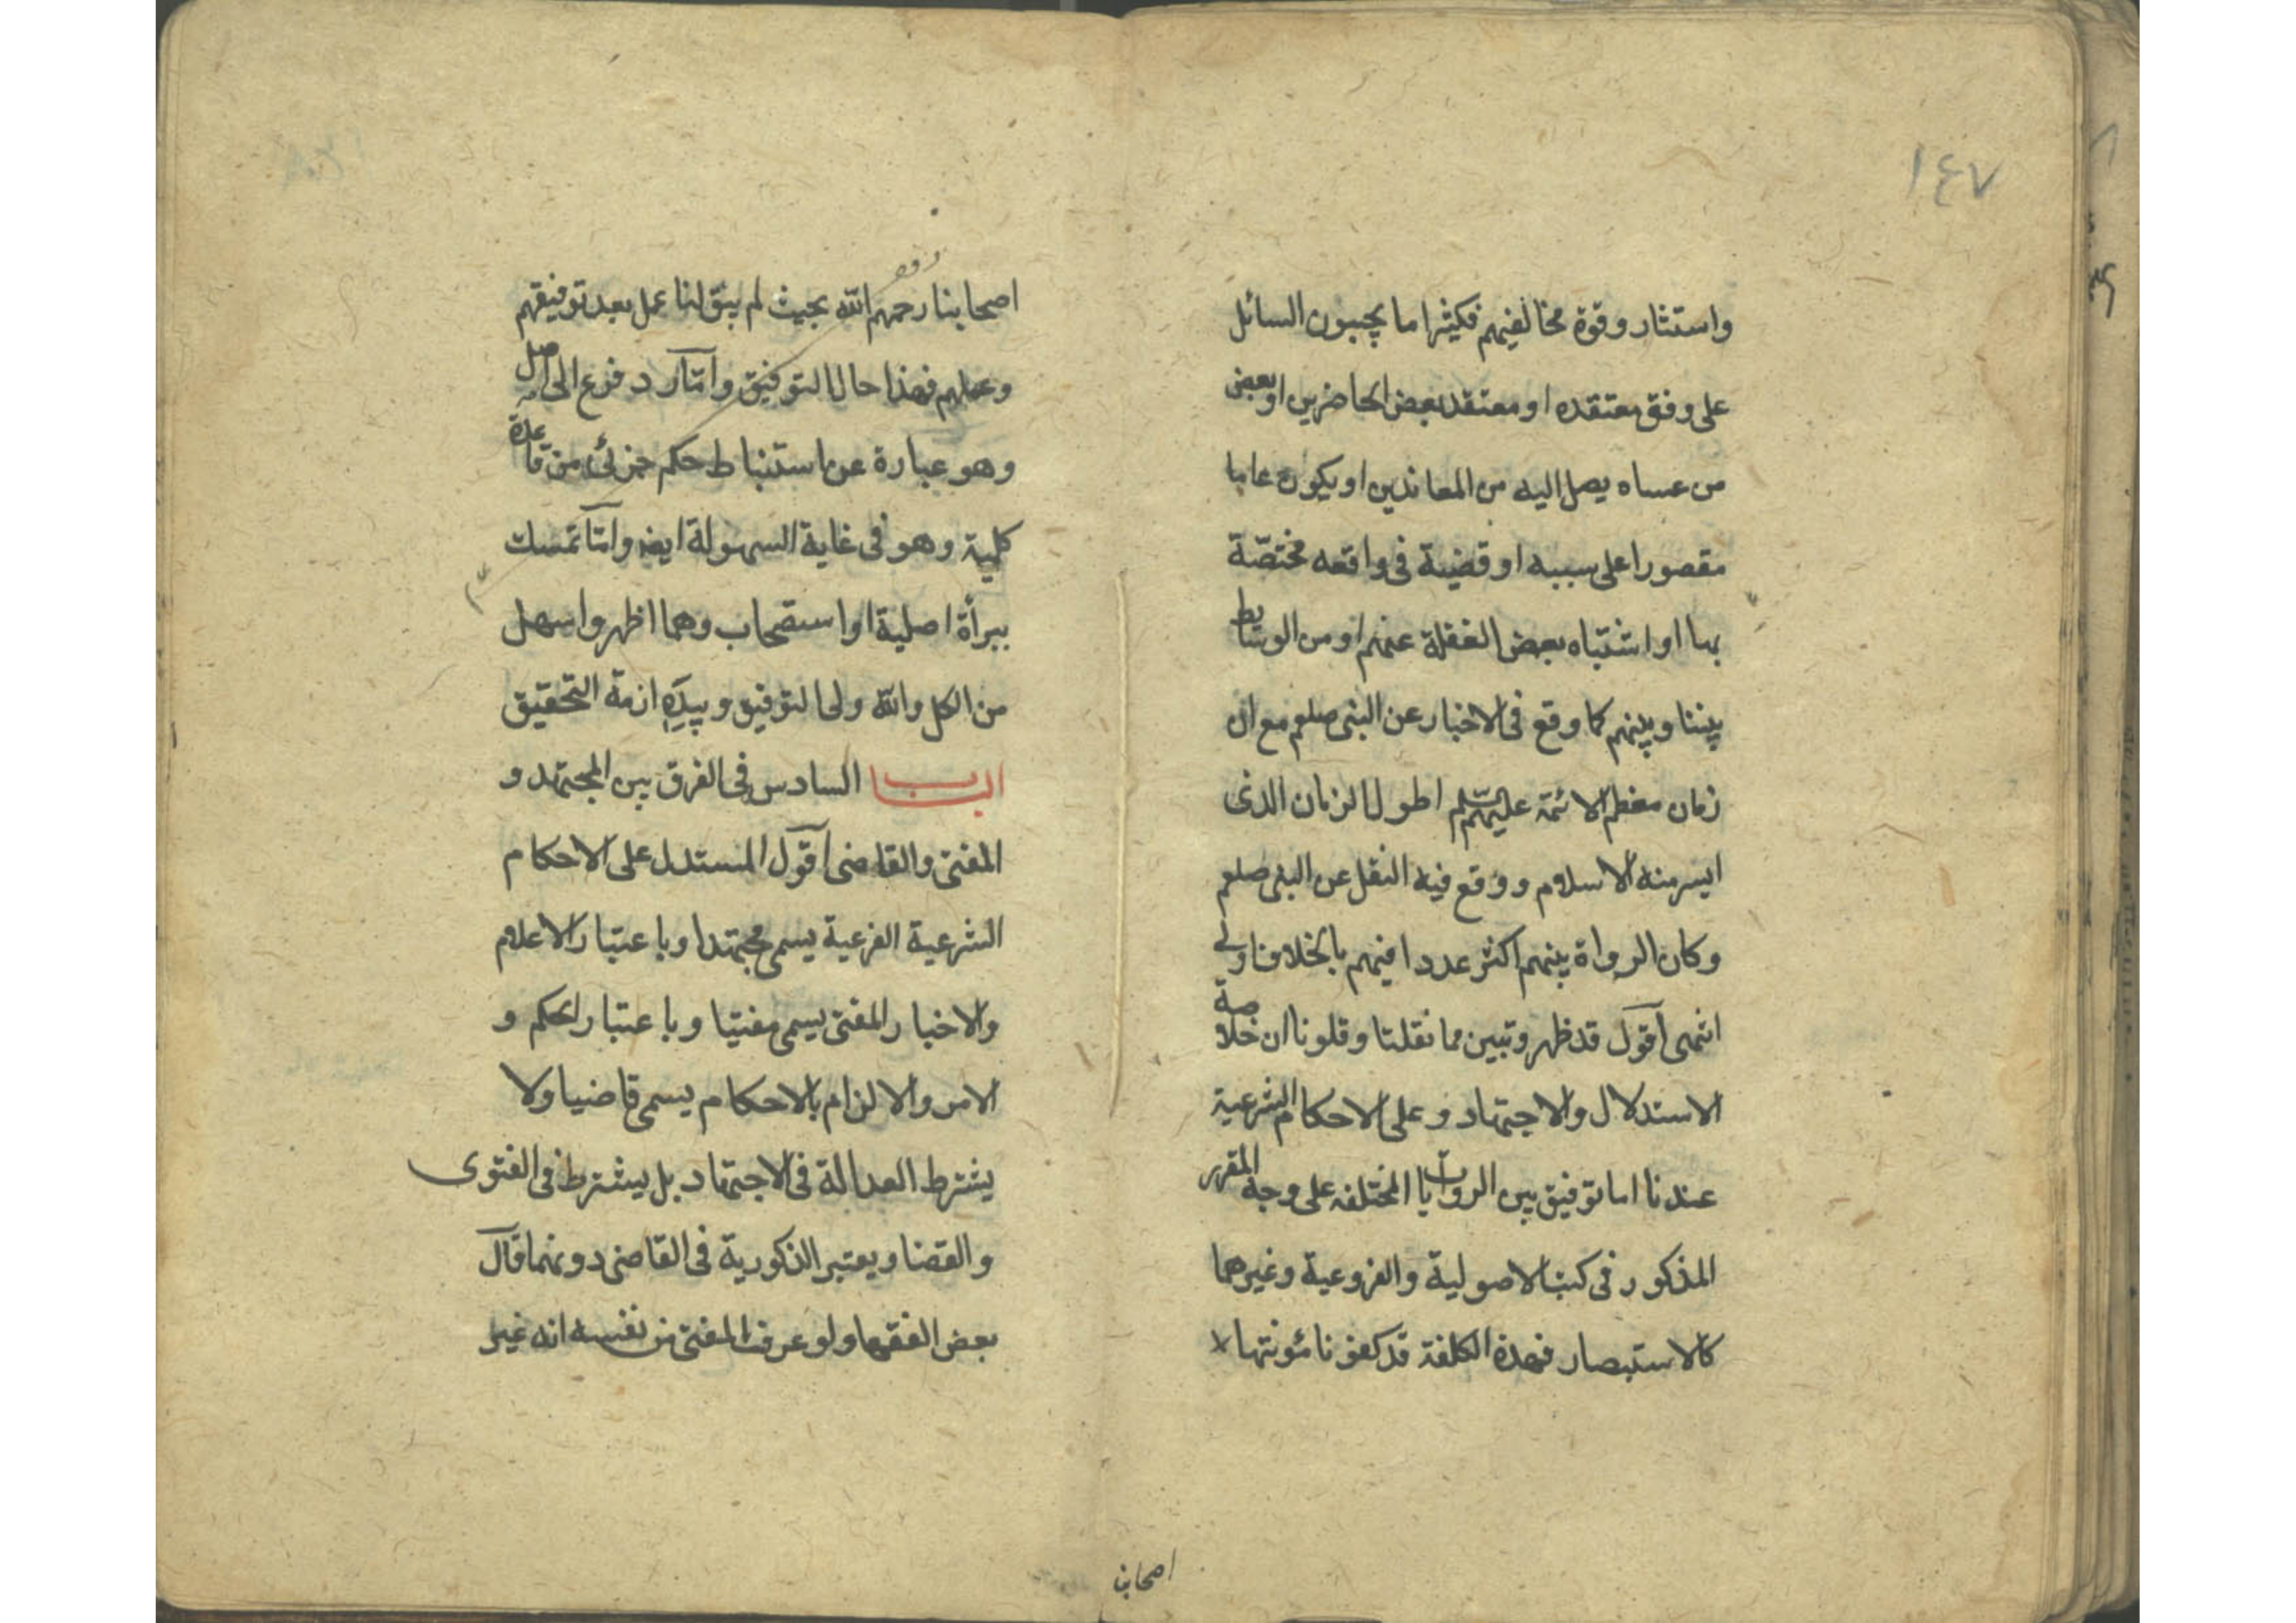 ١٤٧
واستثار وقوة مخالفيهم فكثيرا ما يجيبون السائل
على وفق معتقده او معتقد بعض الحاضرين او بعض
من عساه يصل اليه من المعاندين او يكون عاما
مقصورا على سببه او قضية فى واقعه مختصّة
بها او اشتباه بعض الغفلة عنهم او من الوسايط
بيننا وبينهم كما وقع فى الاخبار عن النبى صلعم مع ان
زمان معظم الائمة عليهم السلم اطول الزمان الذى
ايسر منه الاسلام ووقع فيه النقل عن النبى صلعم
وكان الرواة بينهم اكثر عددا فيهم بالخلاف اولى
انتهى اقول قد ظهر وتبين مما نقلنا وقلونا ان خلاصة
الاستدلال والاجتهاد و على الاحكام الشرعية
عندنا اما توفيق بين الروايات المختلفه على وجه المقرر
المذكور فى كتب الاصولية والفروعية وغيرهما
كالاستبصار فهذة الكلفة قد كفونا مئونتها
اصحابنا
اصحابنا رحمهم الله بحيث لم يبق لنا عمل بعد توفيقهم
وعملهم فهذا حال التوفيق وامّا رد فرع الى اصل
وهو عبارة عن استنباط حكم جزئى من قاعدة
كلية وهو فى غاية السهولة ايضا وامّا تمسك
ببرأة اصلية او استصحاب وهما اظهر واسهل
من الكل والله ولى التوفيق وبيده ازمة التحقيق
الباب السادس فى الفرق بين المجتهد و
المفتى والقاضى اقول المستدل على الاحكام
الشرعية الفرعية يسمى مجتهدا وباعتبار الاعلام
والاخبار المفتى يسمى مفتيا وباعتبار الحكم و
الامر والالزام بالاحكام يسمى قاضيا ولا
يشترط العدالة فى الاجتهاد بل يشترط فى الفتوى
والقضا ويعتبر الذكورية فى القاضى دونهما قال
بعض الفقها ولو عرف المفتى من نفسه انه غير